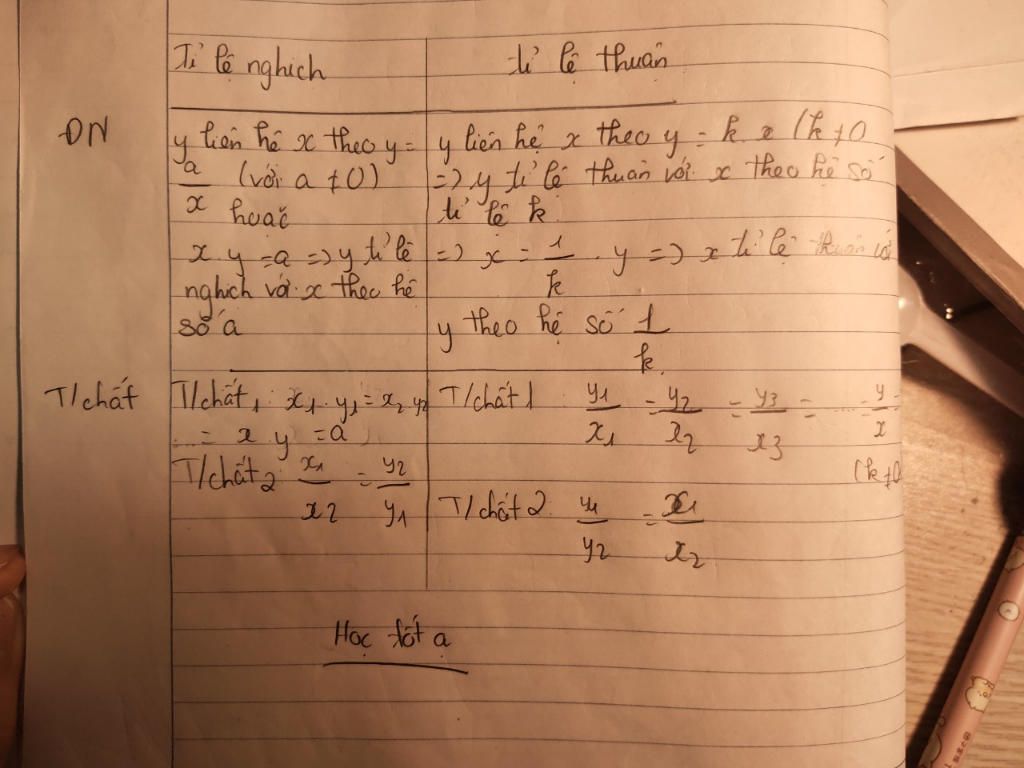 Tỉ lệ nghịch
tỉ lệ thuận
ĐN
y liên hệ x theo y =
a/x (với a ≠ 0)
hoặc
x. y = a => y tỉ lệ
nghịch với x theo hệ
số a
y liên hệ x theo y = k. x (k ≠ 0
=> y tỉ lệ thuận với x theo hệ số
tỉ lệ k
=> x = 1/k . y => x tỉ lệ thuận với
y theo hệ số 1/k.
T/chất
T/chất1: x1. y1 = x2 y2
... = x y = a
T/chất2 x1/x2 = y2/y1
T/chất1 y1/x1 = y2/x2 = y3/x3 = ... y/x =
(k ≠ 0
T/chất 2. y1/y2 = x1/x2
Học tốt ạ